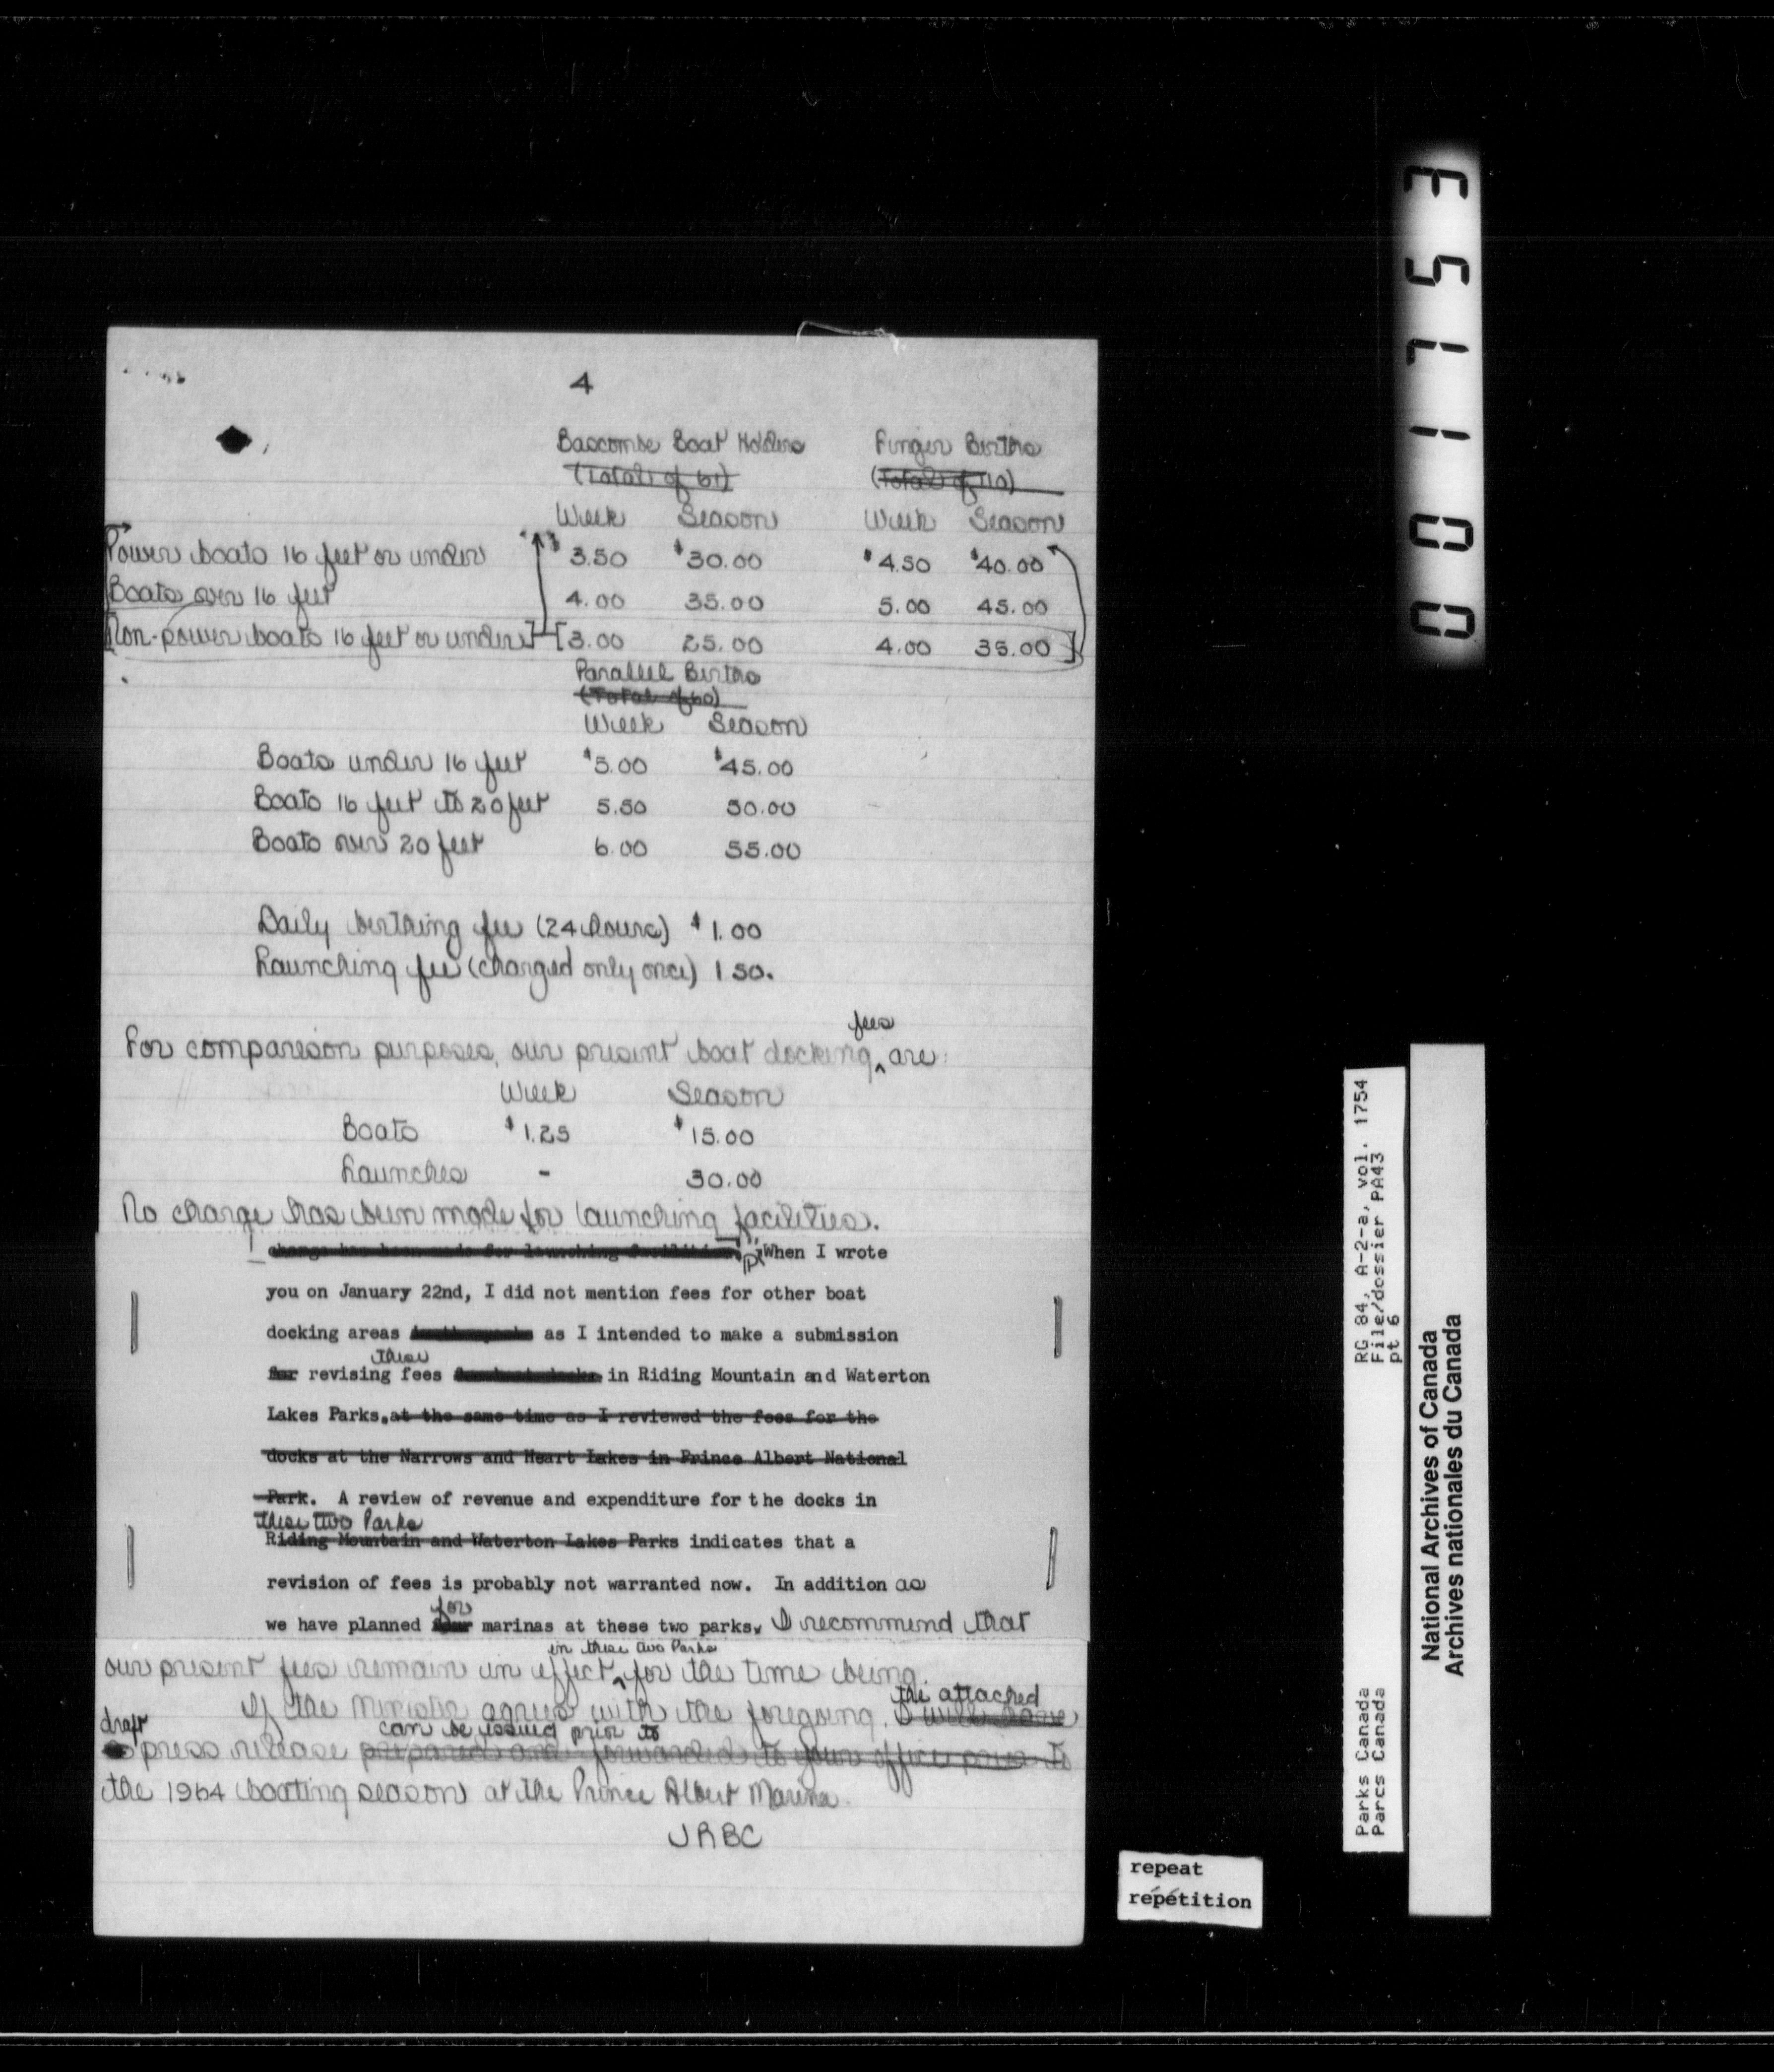 4
Bascombe Boat Holders Finger Berths
(Total of 61) (Total of 110)
Week Season Week Season
Power boats 16 feet or under $3.50 $30.00 $4.50 $40.00
Boats over 16 feet 4.00 35.00 5.00 45.00
[Non-power boats 16 feet or under] [3.00 25.00 4.00 35.00]
Parallel Berths
(Total of 60)
Week Season
Boats under 16 feet $5.00 $45.00
Boats 16 feet to 20 feet 5.50 50.00
Boats over 20 feet 6.00 55.00
Daily berthing fee (24 hours) $1.00
Launching fee (charged only once) 1 50.
fees
For comparison purposes, our present boat docking ^ are:
Week Season
Boats $1.25 $15.00
Launches - 30.00
No charge has been made for launching facilities.
charge has been made for launching facilities. When I wrote
you on January 22nd, I did not mention fees for other boat
docking areas in the parks as I intended to make a submission
these
for revising fees in Riding Mountain and Waterton
Lakes Parks, at the same time as I reviewed the fees for the
docks at the Narrows and Heart Lakes in Prince Albert National
Park. A review of revenue and expenditure for the docks in
these two Parks
Riding Mountain and Waterton Lakes Parks indicates that a
revision of fees is probably not warranted now. In addition as
for
we have planned marinas at these two parks, I recommend that
in these two Parks
our present fees remain in effect ^ for the time being.
If the Minister agrees with the foregoing, I will have
the attached
draft can be issued prior to
press release prepared and forwarded to your office prior to
the 1964 boating season at the Prince Albert Marina.
JRBC
001753
RG 84, A-2-a, vol. 1754
File/dossier PA43
pt 6
Parks Canada
Parcs Canada
National Archives of Canada
Archives nationales du Canada
repeat
répétition